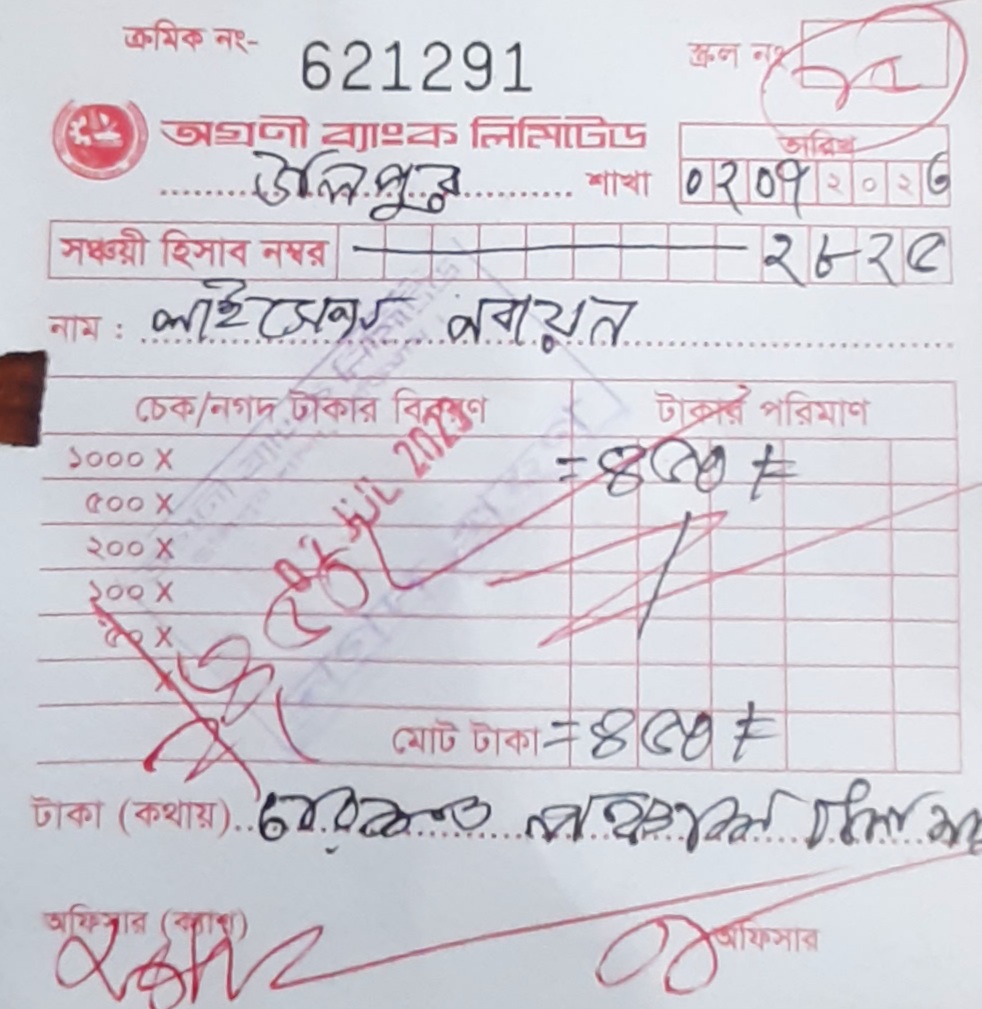 ক্রমিক নং- 621291 স্ক্রল নং
অগ্রণী ব্যাংক লিমিটেড
তারিখ
উলিপুর শাখা ০২০৭২০২৩
সঞ্চয়ী হিসাব নম্বর ২৮২৫
নাম : লাইসেন্স নবায়ন
চেক/নগদ টাকার বিবরণ টাকার পরিমাণ
১০০০ X =৪৫০/=
৫০০ X
২০০ X
১০০ X
৫০ X
X
JUL 2023
মোট টাকা =৪৫০/=
টাকা (কথায়) চারশত পঞ্চাশ টাকা মাত্র
অফিসার (ক্যাশ) অফিসার